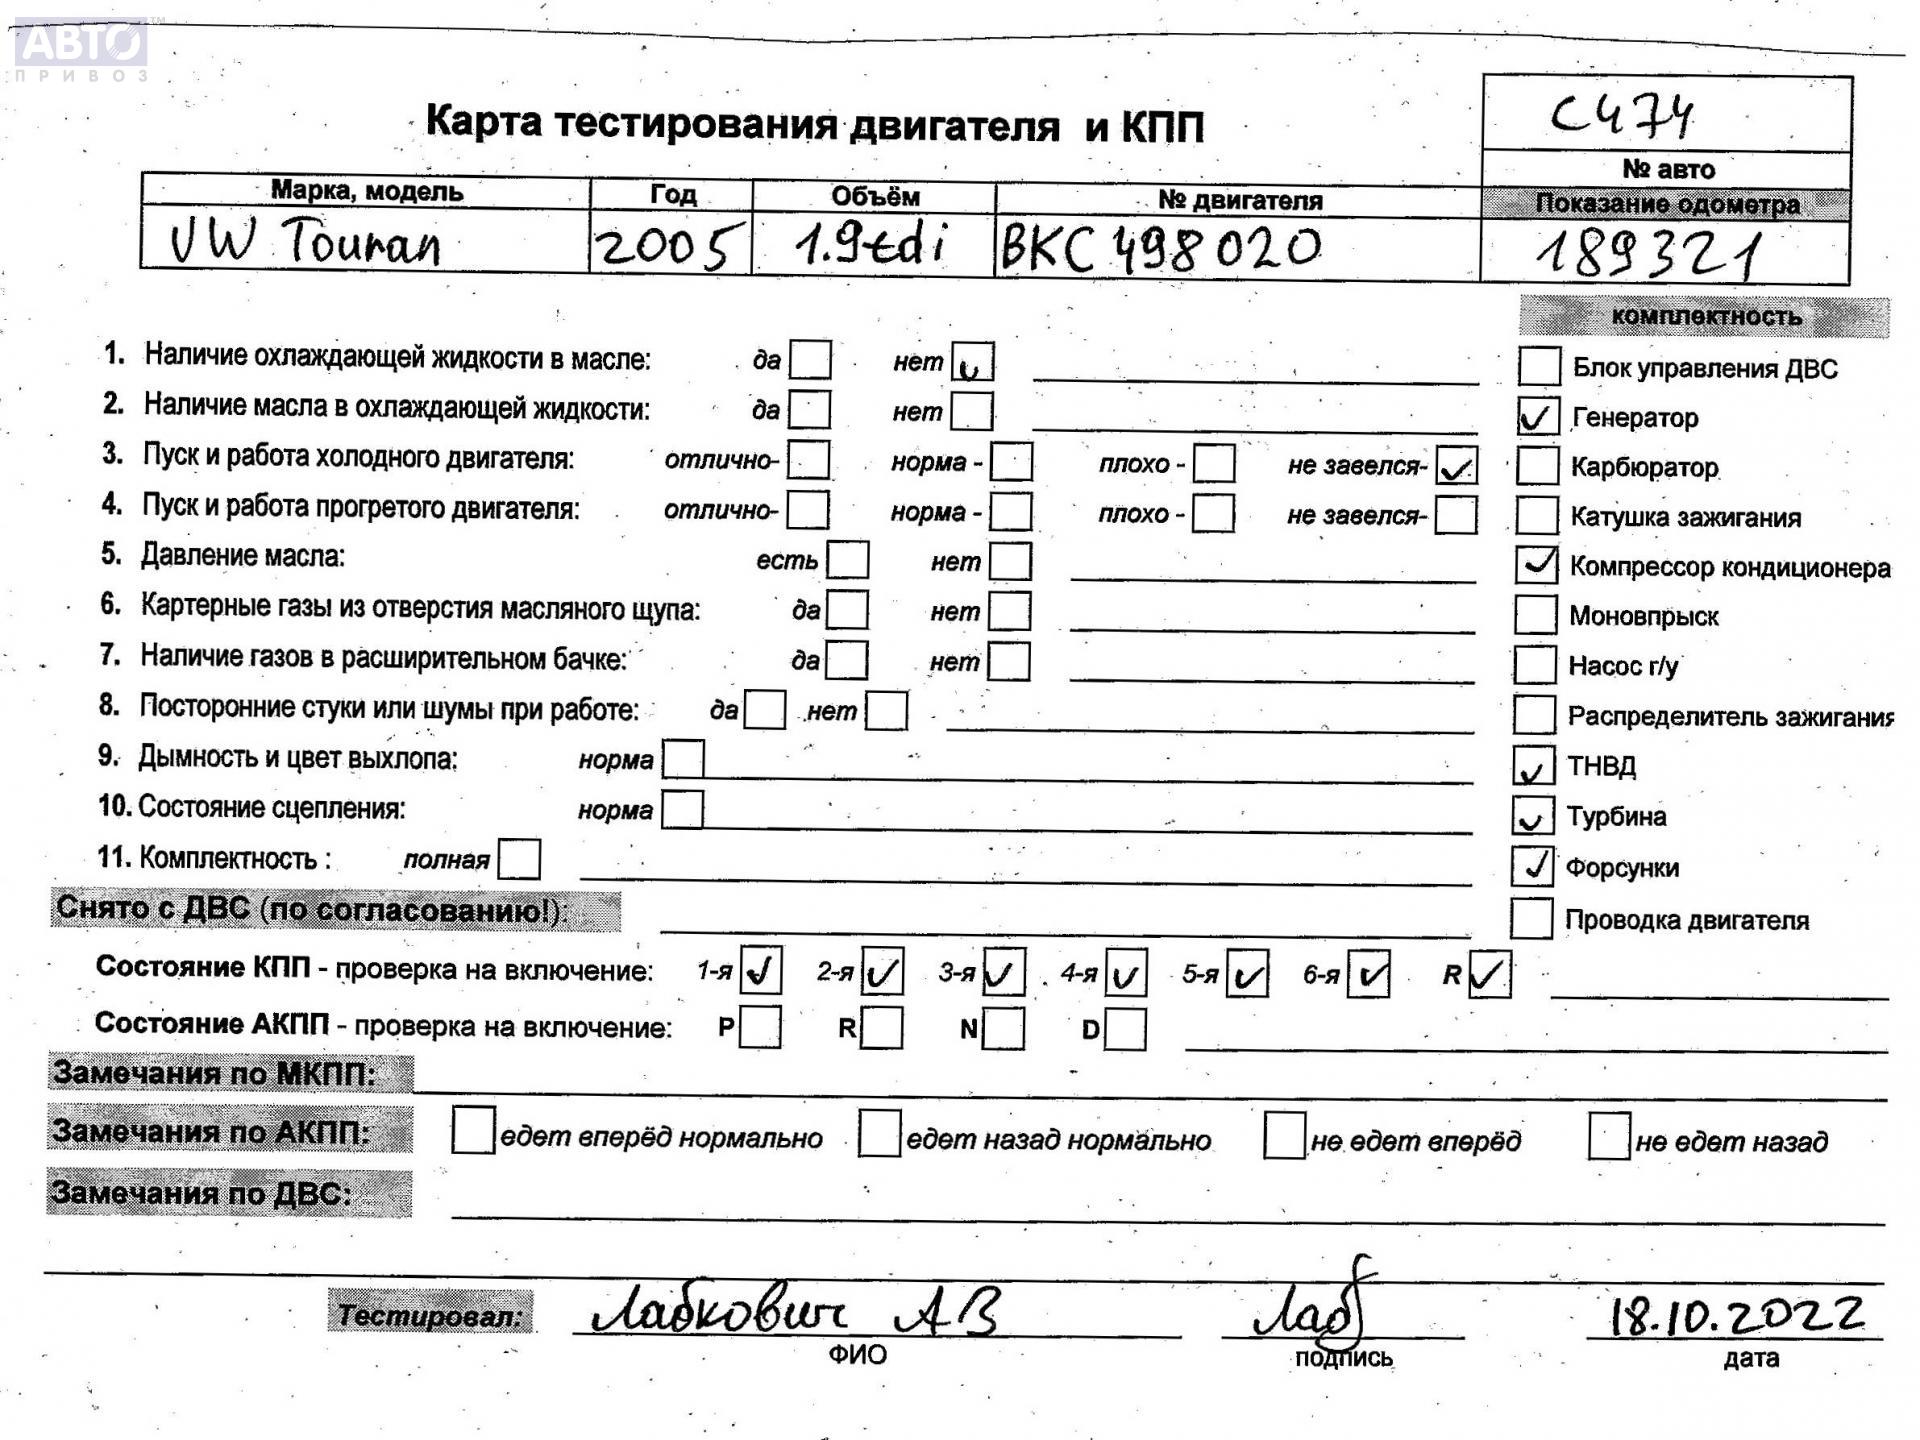 АВТО™
ПРИВОЗ
С474
Карта тестирования двигателя и КПП
№ авто
Марка, модель Год Объём № двигателя Показание одометра
VW Touran 2005 1.9tdi BKC 498020 189321
комплектность
1. Наличие охлаждающей жидкости в масле: да нет ✓ Блок управления ДВС
2. Наличие масла в охлаждающей жидкости: да нет ✓ Генератор
3. Пуск и работа холодного двигателя: отлично- норма - плохо - не завелся- ✓ Карбюратор
4. Пуск и работа прогретого двигателя: отлично- норма - плохо - не завелся- Катушка зажигания
5. Давление масла: есть нет ✓ Компрессор кондиционера
6. Картерные газы из отверстия масляного щупа: да нет Моновпрыск
7. Наличие газов в расширительном бачке: да нет Насос г/у
8. Посторонние стуки или шумы при работе: да нет Распределитель зажигания
9. Дымность и цвет выхлопа: норма ✓ ТНВД
10. Состояние сцепления: норма ✓ Турбина
11. Комплектность : полная ✓ Форсунки
Снято с ДВС (по согласованию!): Проводка двигателя
Состояние КПП - проверка на включение: 1-я ✓ 2-я ✓ 3-я ✓ 4-я ✓ 5-я ✓ 6-я ✓ R ✓
Состояние АКПП - проверка на включение: P R N D
Замечания по МКПП:
Замечания по АКПП: едет вперёд нормально едет назад нормально не едет вперёд не едет назад
Замечания по ДВС:
Тестировал: Лабкович АВ Лаб 18.10.2022
ФИО подпись дата